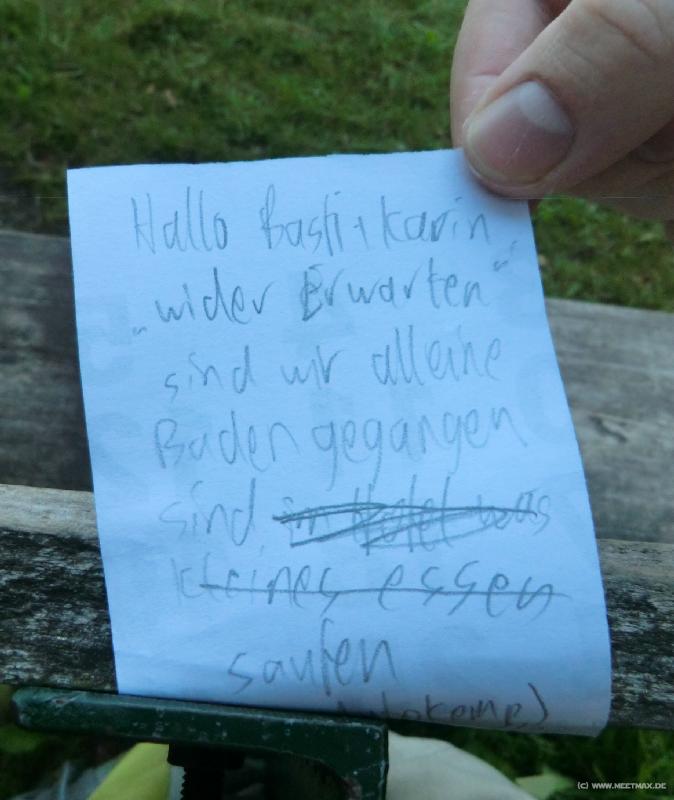 Hallo Basti + Karin
„wider Erwarten“
sind wir alleine
Baden gegangen
sind im Hotel was
kleines essen
saufen
(C) WWW.MEETMAX.DE